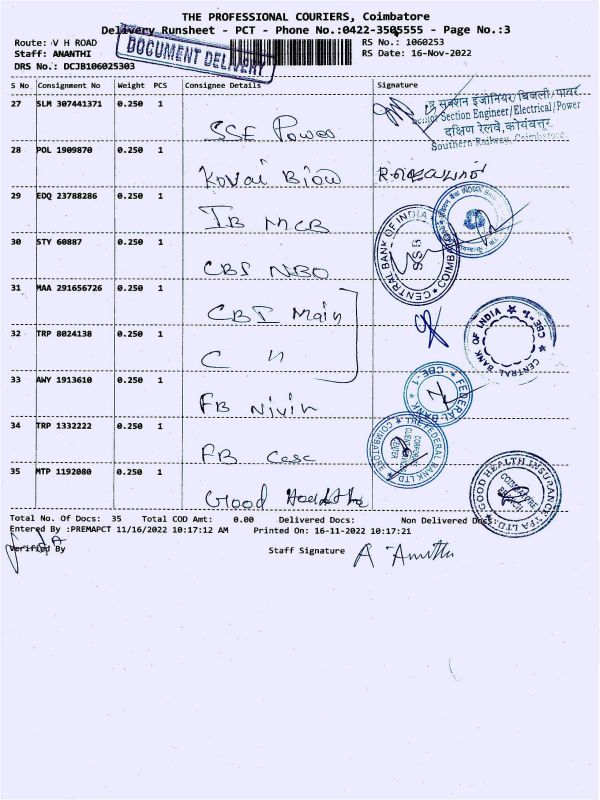 THE PROFESSIONAL COURIERS, Coimbatore
Delivery Runsheet - PCT - Phone No.:0422-3505555 - Page No.:3
Route: V H ROAD
RS No.: 1060253
Staff: ANANTHI
RS Date: 16-Nov-2022
DRS No.: DCJB106025303
DOCUMENT DELIVERY
S No Consignment No Weight PCS Consignee Details Signature
27 SLM 307441371 0.250 1
SSE Power
व सेक्शन इंजीनियर/बिजली/पावर
Senior Section Engineer/Electrical/Power
दक्षिण रेलवे,कोयंबत्तूर
Southern Railway, Coimbatore
28 POL 1909870 0.250 1
Kovai Biow
29 EDQ 23788286 0.250 1
IB MCB
INDIAN
30 STY 60887 0.250 1
CBI NBO
CENTRAL BANK OF INDIA
SSB
COIMB
31 MAA 291656726 0.250 1
CBI Main
CENTRAL BANK OF INDIA
CBE-1
32 TRP 8024138 0.250 1
C "
33 AWY 1913610 0.250 1
FB Nivin
FEDERAL BANK
CBE-1
34 TRP 1332222 0.250 1
FB Casc
THE FEDERAL BANK LTD.
COIMBATORE
35 MTP 1192080 0.250 1
Good Health
GOOD HEALTH INSURANCE TPA LTD.
COIMBATORE
BRANCH
Total No. Of Docs: 35 Total COD Amt: 0.00 Delivered Docs: Non Delivered Docs:
Entered By :PREMAPCT 11/16/2022 10:17:12 AM Printed On: 16-11-2022 10:17:21
Verified By
Staff Signature